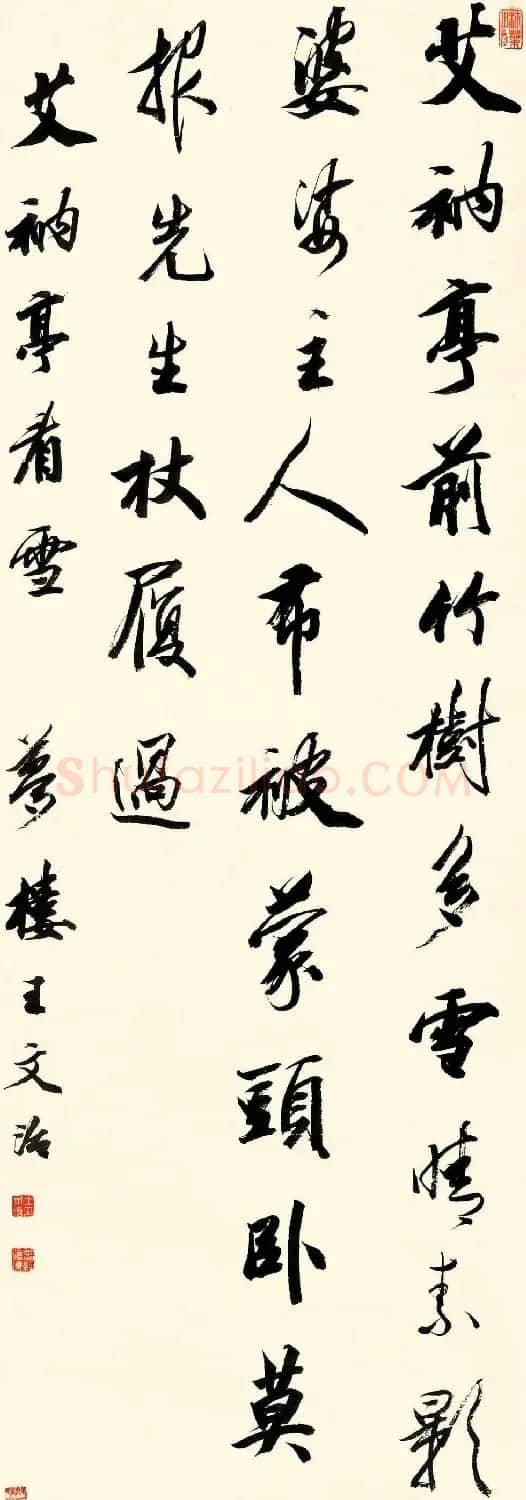 艾衲亭前竹樹多雪晴素影
婆娑主人布被蒙頭卧莫
报先生杖履過
艾衲亭看雪 夢樓王文治
Shufaziliao.COM